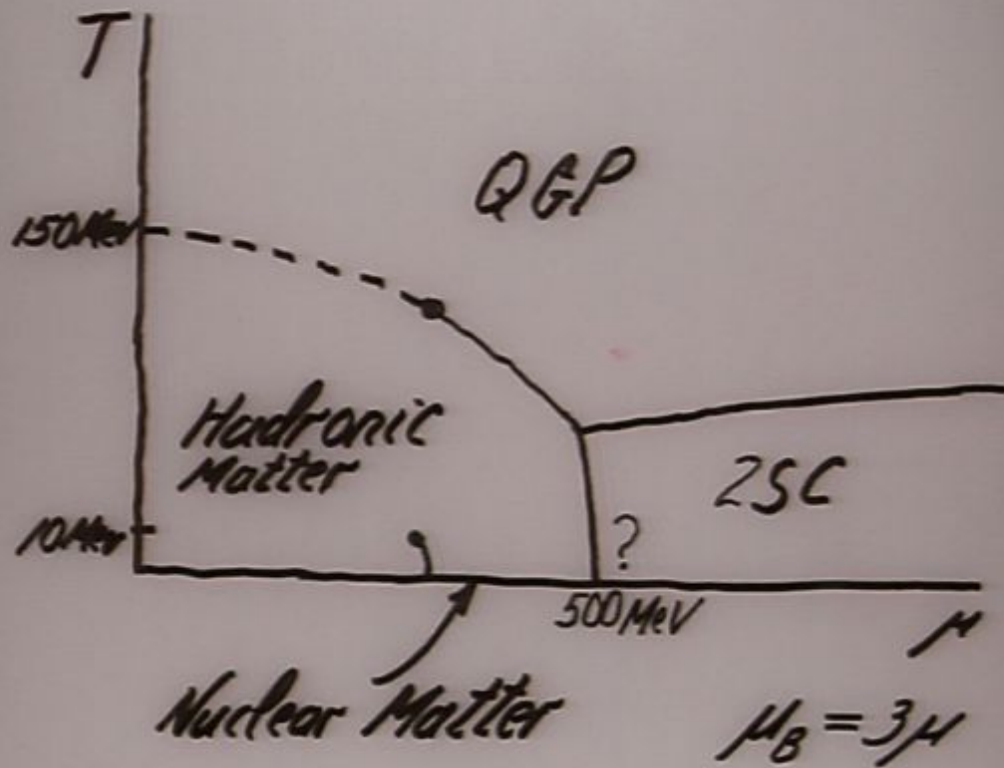 T
QGP
150 MeV
Hadronic
Matter
2SC
10 MeV
?
500 MeV
μ
Nuclear Matter
μ_B = 3μ